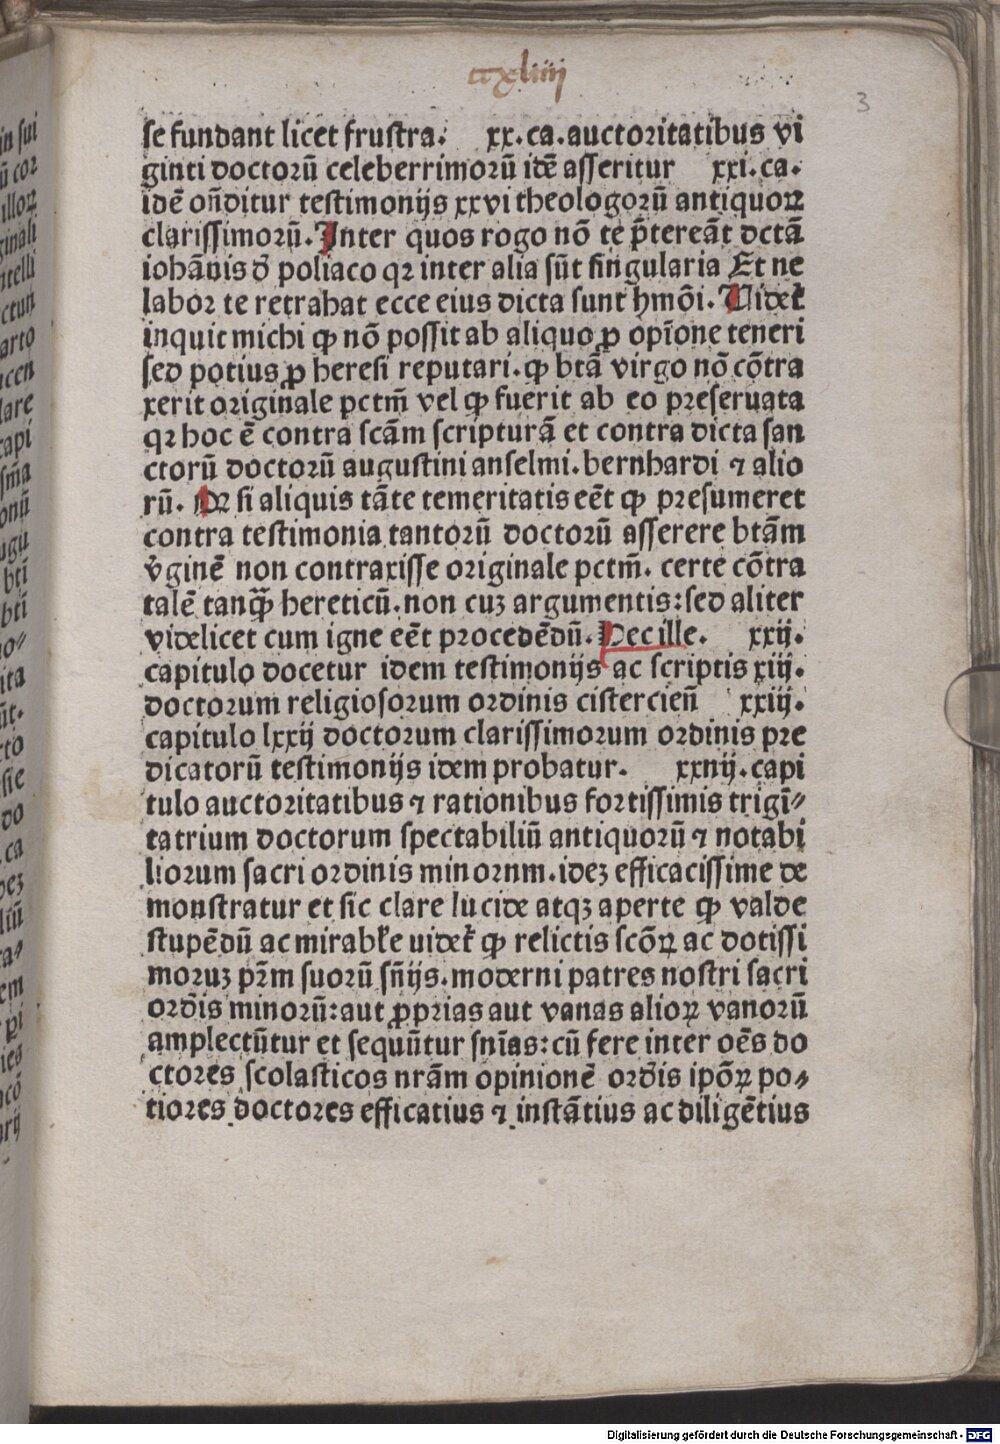 ccxliiij
3
se fundant licet frustra. xx. ca. auctoritatibus vi
ginti doctorū celeberrimorū idē asseritur xxi. ca.
idē oñditur testimonijs xxvi theologorū antiquoꝝ
clarissimorū. Inter quos rogo nō te p̄tereāt dctā
iohānis đ poliaco qꝛ inter alia sūt singularia Et ne
labor te retrahat ecce eius dicta sunt hmōi. Videt̄
inquit michi ꝙ nō possit ab aliquo ꝓ opīone teneri
sed potius ꝓ heresi reputari. ꝙ btā virgo nō cōtra
xerit originale pctm̄ vel ꝙ fuerit ab eo preseruata
qꝛ hoc ē contra scām scripturā et contra dicta san
ctorū doctorū augustini anselmi. bernhardi ⁊ alio
rū. Qꝛ si aliquis tāte temeritatis eēt ꝙ presumeret
contra testimonia tantorū doctorū asserere btām
v̓ginē non contraxisse originale pctm̄. certe cōtra
talē tanꝙ̄ hereticū. non cuꝫ argumentis: sed aliter
videlicet cum igne eēt procedēdū. Hec ille. xxij.
capitulo docetur idem testimonijs ac scriptis xiij.
doctorum religiosorum ordinis cistercieñ xxiij.
capitulo lxxij doctorum clarissimorum ordinis pre
dicatorū testimonijs idem probatur. xxnij. capi
tulo auctoritatibus ⁊ rationibus fortissimis trigī⸗
ta trium doctorum spectabiliū antiquorū ⁊ notabi
liorum sacri ordinis minornm. ideꝫ efficacissime de
monstratur et sic clare lucide atqꝫ aperte ꝙ valde
stupēdū ac mirabłe uidet̄ ꝙ relictis scōꝝ ac dotissi
moruꝫ pr̄m suorū sñijs. moderni patres nostri sacri
ordīs minorū: aut ꝓprias aut vanas alioꝝ vanorū
amplectūtur et sequūtur snīas: cū fere inter oēs do
ctores scolasticos nrām opinionē ordīs ipōꝝ po⸗
tiores doctores efficatius ⁊ instātius ac diligētius
Digitalisierung gefördert durch die Deutsche Forschungsgemeinschaft - DFG